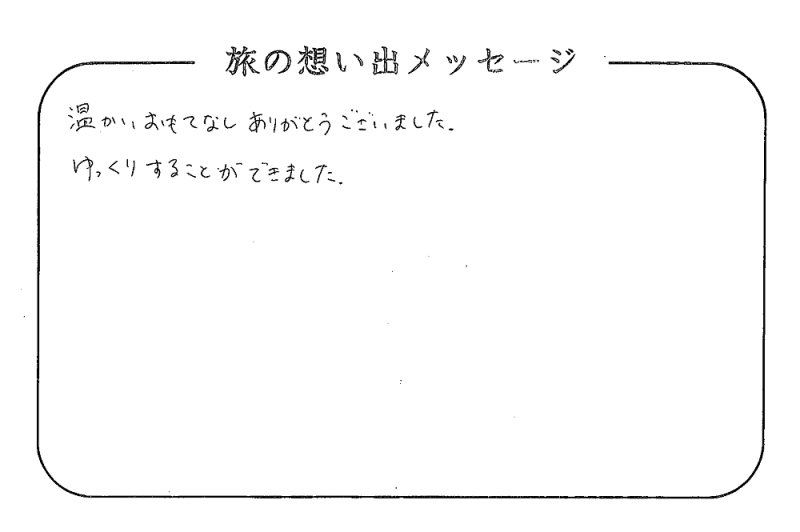 旅の想い出メッセージ
温かいおもてなしありがとうございました。
ゆっくりすることができました。